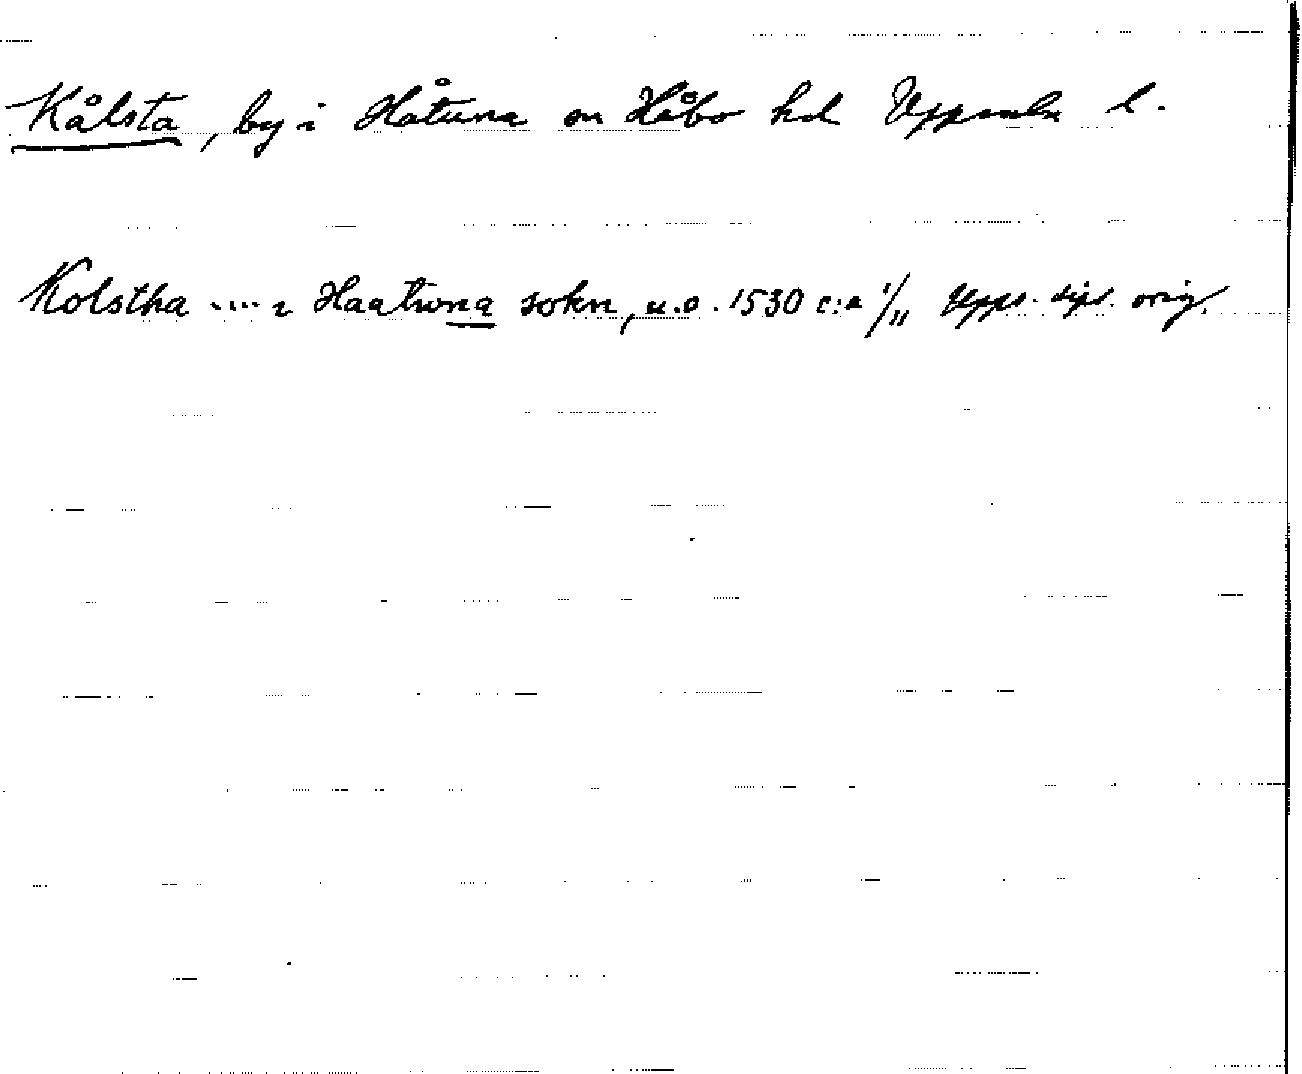 Kålsta, by i Håtuna sn Håbo hd Uppsala l.
Kolstha .... i Haatwna sokn, u.o. 1530 c:a 1/11 Upps. dipl. orig.